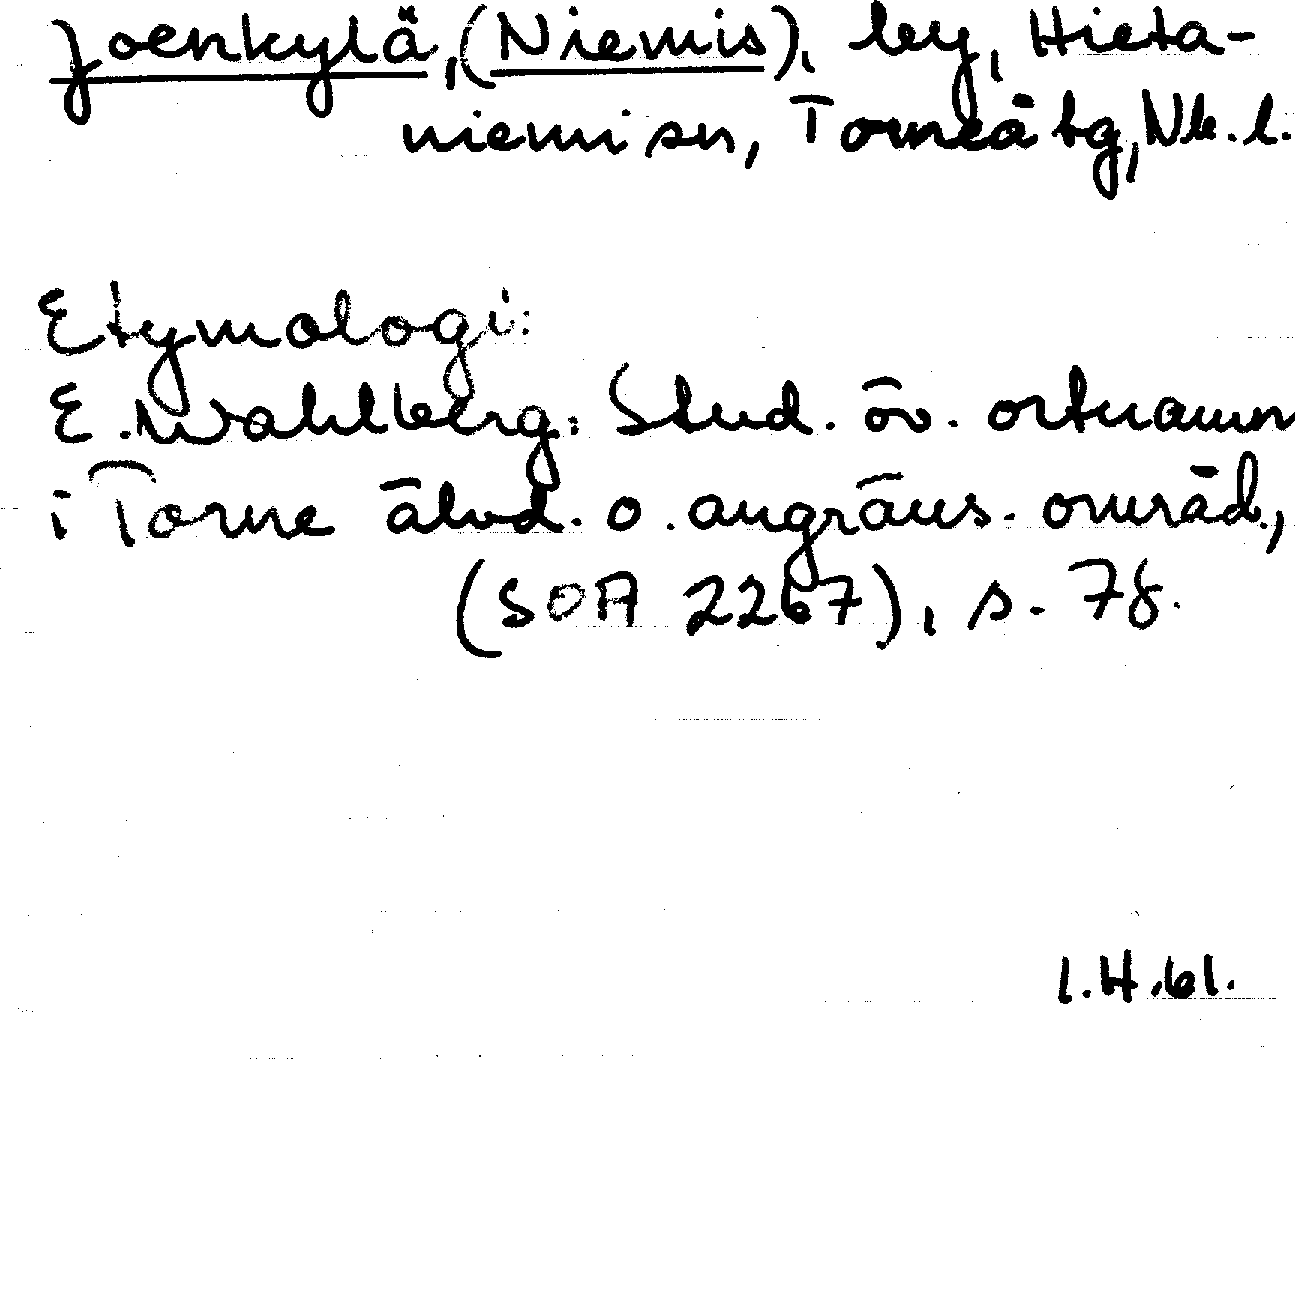 Joenkylä, (Niemis), by, Hieta-
niemi sn, Torneå tg, Nb. l.
Etymologi:
E. Wahlberg: Stud. öv. ortnamn
i Torne älvd. o. angräns.områd.,
(SOA 2267), s. 78.
1.4.61.